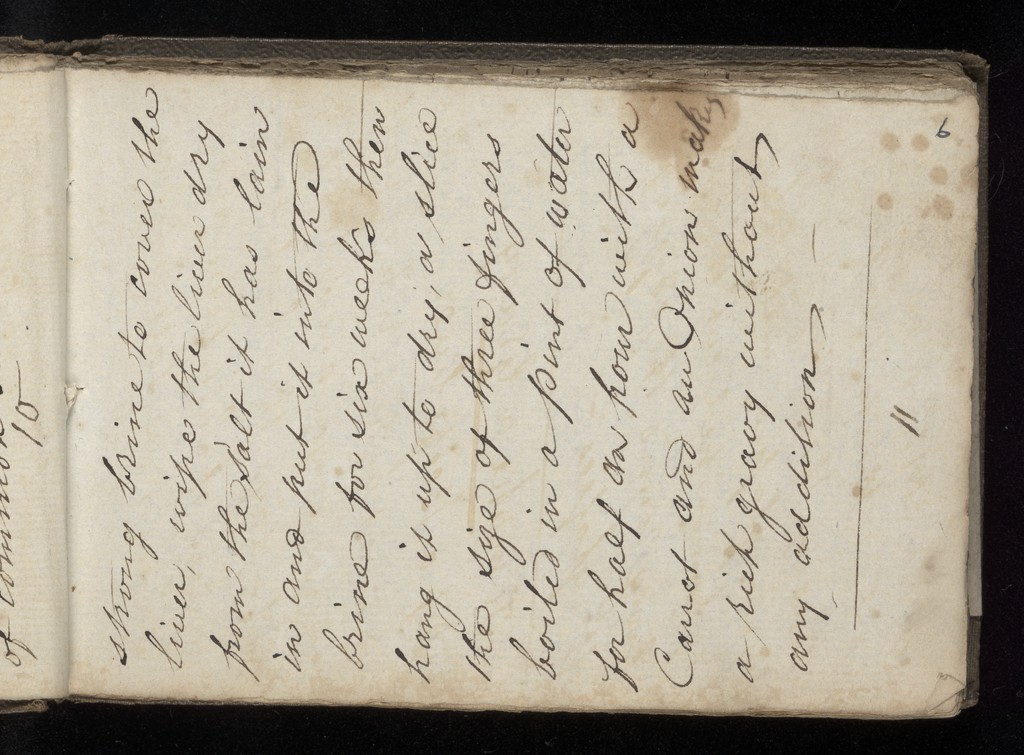 of common
10
6
strong brine to cover the
liver, wipe the liver dry
from the salt it has lain
in and put it into the
brine for six weeks then
hang it up to dry, a slice
the size of three fingers
boiled in a pint of water
for half an hour with a
Carrot and an Onion makes
a rich gravy without
any addition
11